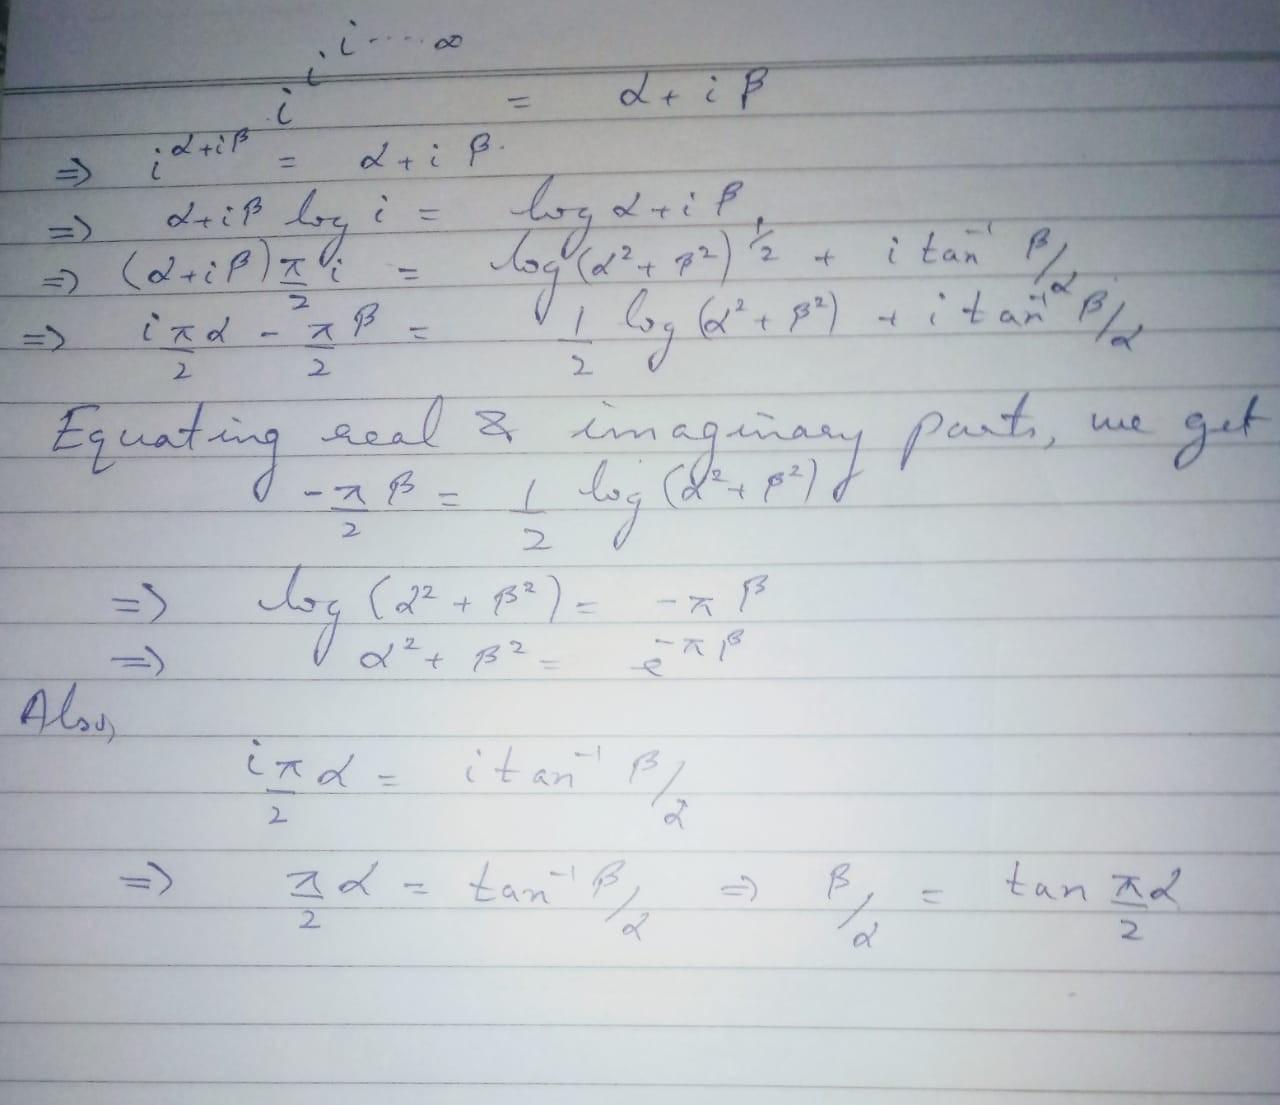 i^i^i^....∞ = α + iβ
⇒ i^(α+iβ) = α + iβ.
⇒ α+iβ log i = log α+iβ
⇒ (α+iβ) π/2 i = log (α² + β²)^1/2 + i tan⁻¹ β/α
⇒ i π/2 α - π/2 β = 1/2 log (α² + β²) + i tan⁻¹ β/α
Equating real & imaginary parts, we get
-π/2 β = 1/2 log (α² + β²)
⇒ log (α² + β²) = -πβ
⇒ α² + β² = e^(-πβ)
Also,
i π/2 α = i tan⁻¹ β/α
⇒ π/2 α = tan⁻¹ β/α ⇒ β/α = tan π/2 α